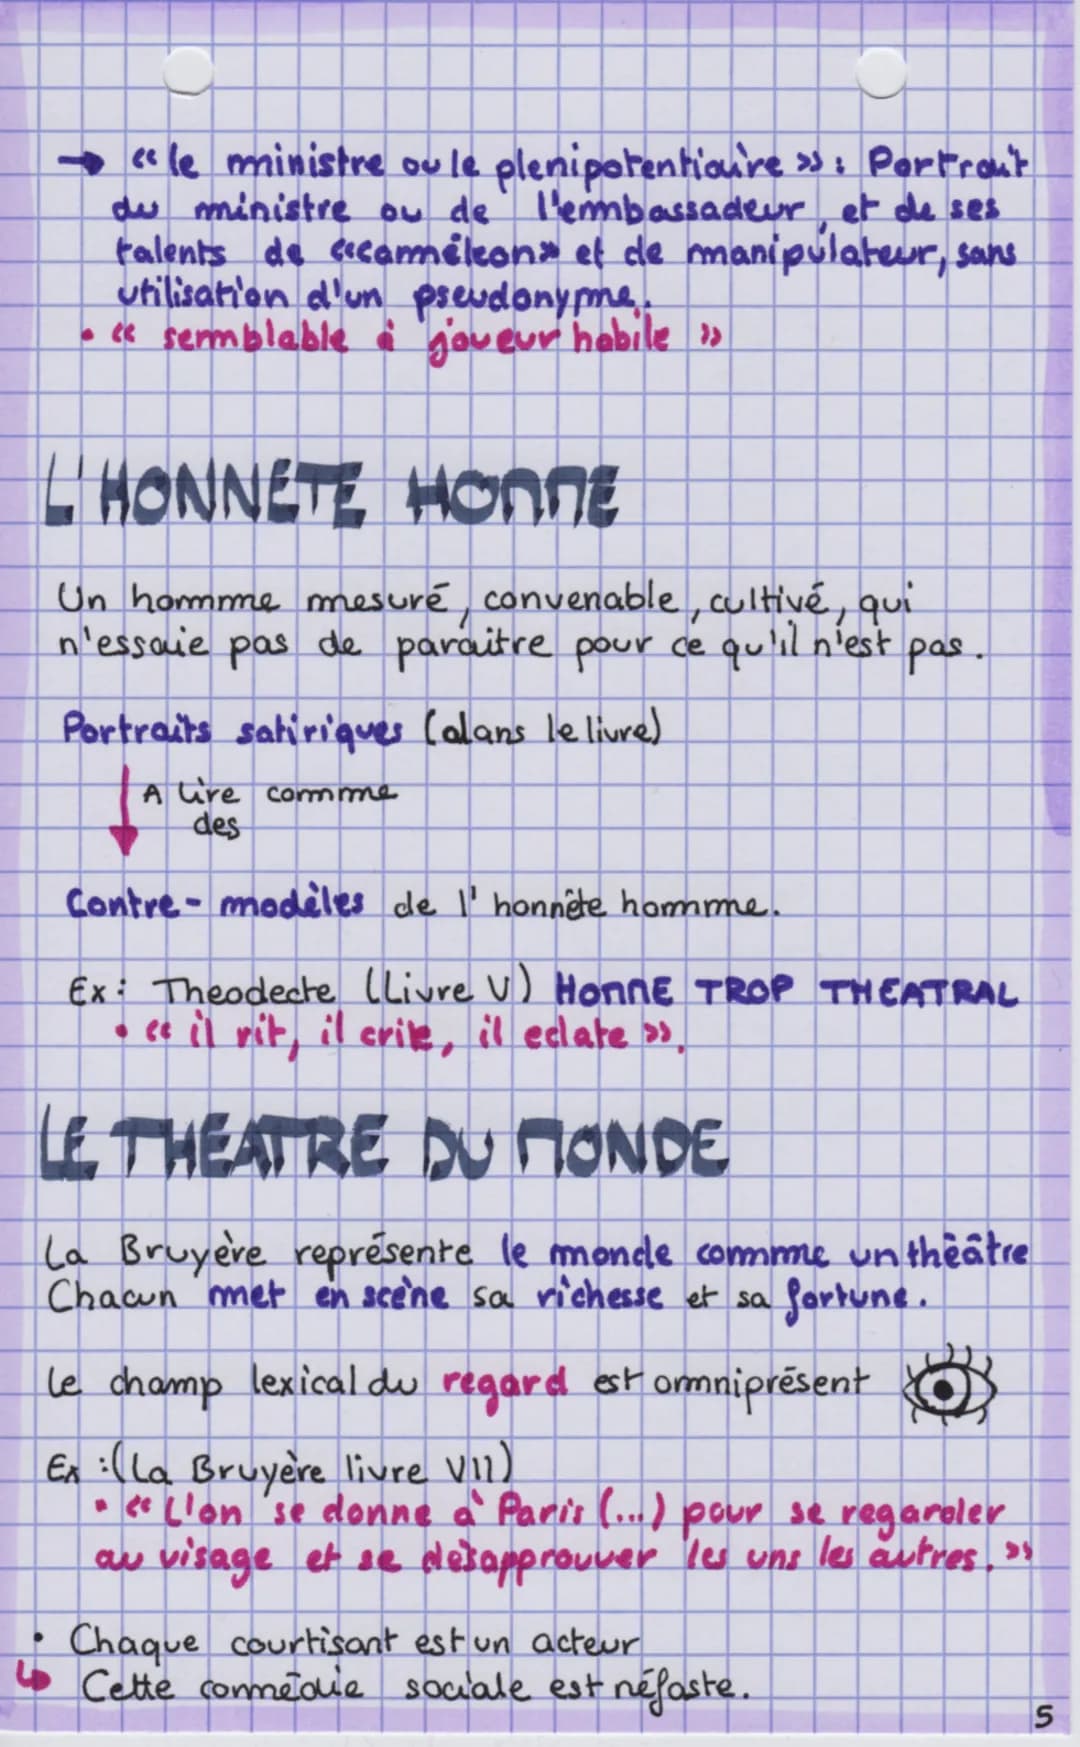 → « le ministre ou le plenipotentiaire » : Portrait
du ministre ou de l'embassadeur, et de ses
talents de «caméleon» et de manipulateur, sans
utilisation d'un pseudonyme.
• « semblable à joueur habile »
L'HONNÊTE HOMME
Un homme mesuré, convenable, cultivé, qui
n'essaie pas de paraitre pour ce qu'il n'est pas.
Portraits satiriques (dans le livre)
A lire comme
des
Contre-modèles de l'honnête homme.
Ex : Theodecte (Livre V) HOMME TROP THEATRAL
• « il rit, il crie, il eclate ».
LE THEATRE DU MONDE
La Bruyère représente le monde comme un théâtre
Chacun met en scène sa richesse et sa fortune.
Le champ lexical du regard est omniprésent
Ex : (La Bruyère livre VII)
• « L'on se donne à Paris (...) pour se regarder
au visage et se désapprouver les uns les autres. »
• Chaque courtisant est un acteur
↳ Cette comédie sociale est néfaste.
5